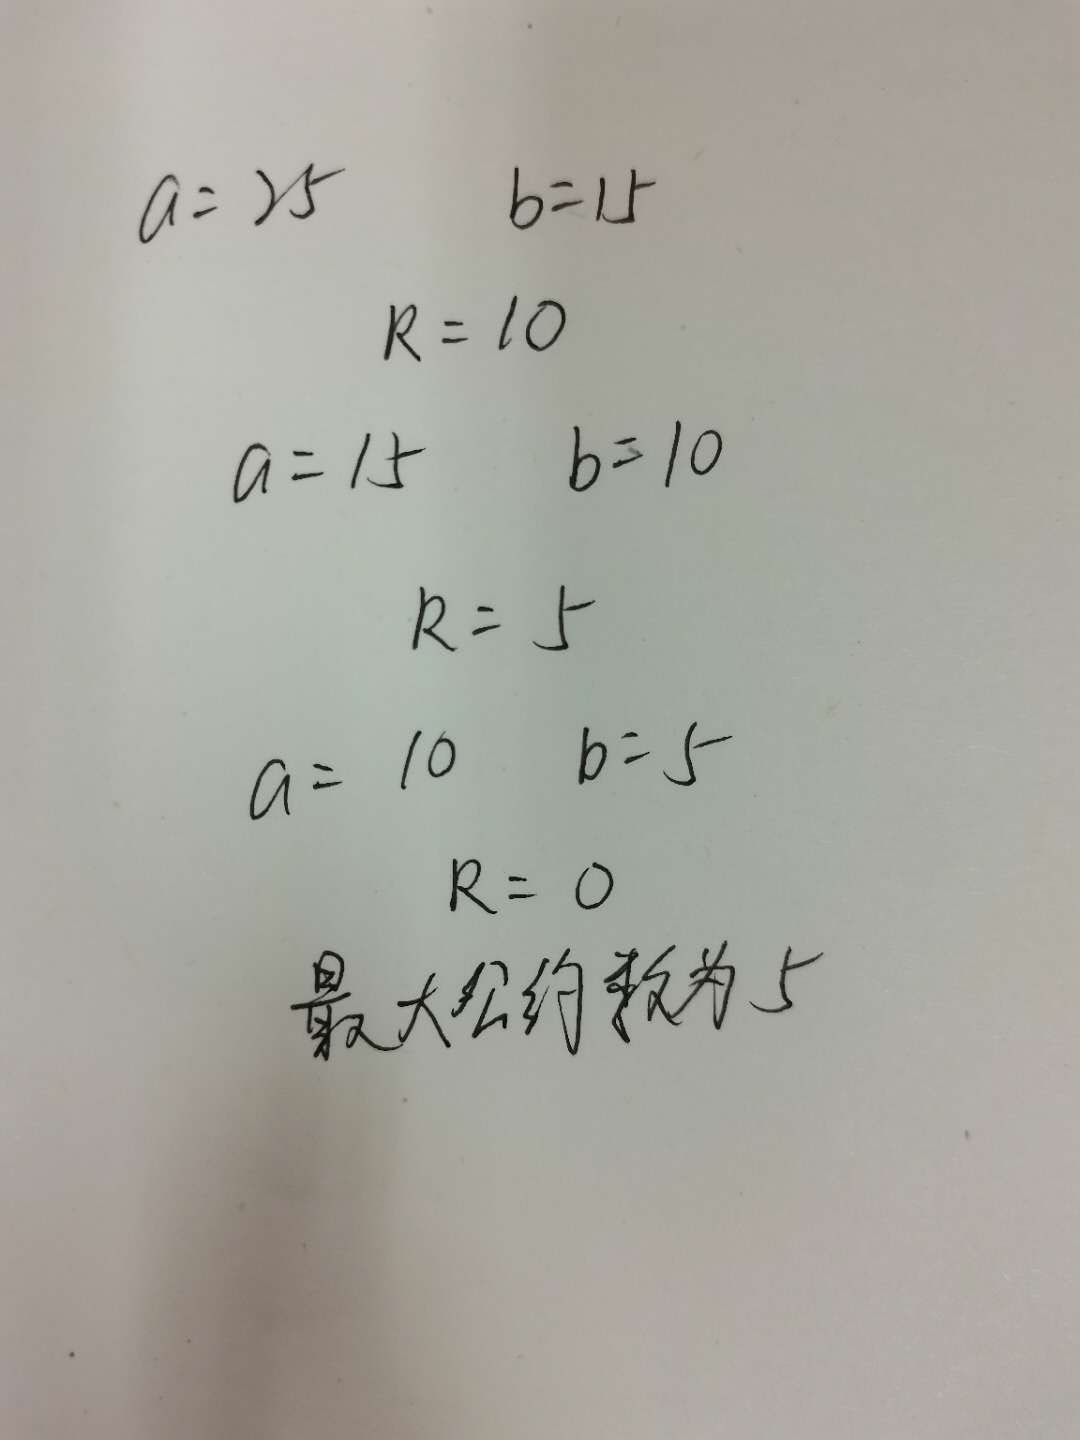 a=25 b=15
R=10
a=15 b=10
R=5
a=10 b=5
R=0
最大公约数为5